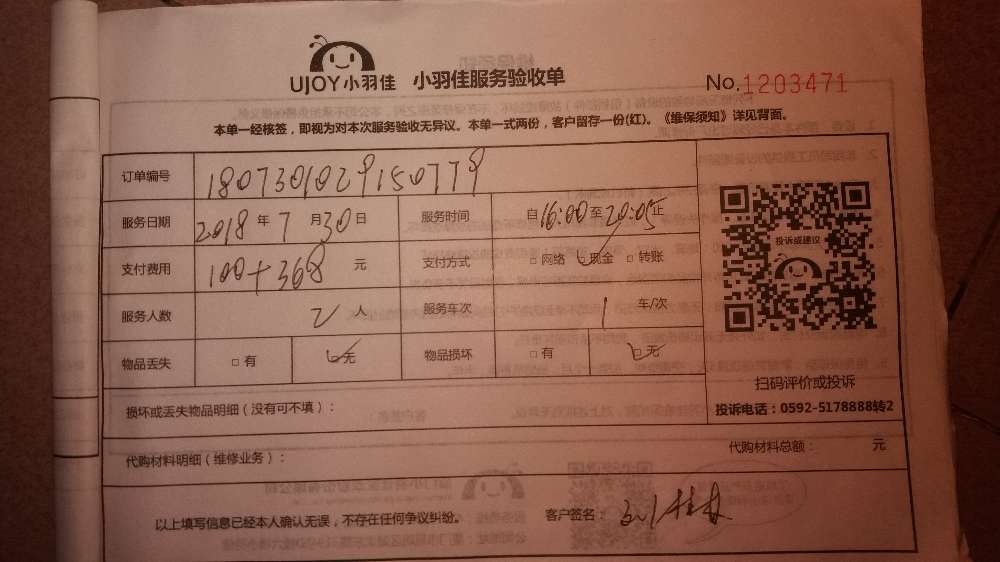 UJOY小羽佳 小羽佳服务验收单 No.1203471
本单一经核签，即视为对本次服务验收无异议。本单一式两份，客户留存一份(红)。《维保须知》详见背面。
订单编号 180730102915077 9
服务日期 2018 年 7 月 30 日 服务时间 自 16:00 至 20:05 止
支付费用 100+368 元 支付方式 □网络 ☑现金 □转账
服务人数 2 人 服务车次 1 车/次
物品丢失 □有 ☑无 物品损坏 □有 ☑无
投诉或建议
扫码评价或投诉
投诉电话：0592-5178888转2
损坏或丢失物品明细（没有可不填）：
代购材料明细（维修业务）： 代购材料总额： 元
以上填写信息已经本人确认无误，不存在任何争议纠纷。 客户签名：